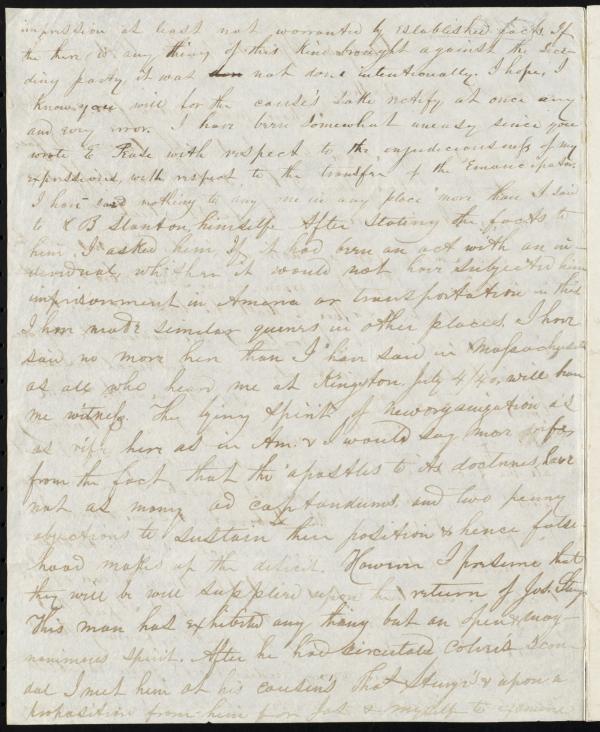 impression at least not warranted by established facts. If
the there is any thing of this kind brought against the Sece-
ding party, it was not done intentionally. I hope, I
know you will for the cause's sake notify at once any
and evry error. I have been somewhat uneasy since you
wrote E Pease with respect to the injudiciousness of my
expressions, with respect to the transfer of the Emancipator.
I have said nothing to any one in any place more than I said
to H B Stanton, himself. After stating the facts to
him, I asked him If it had been an act with an in-
dividual, whether it would not have subjected him
imprisonment in America or transportation in this
I have made similar queries in other places. I have
said no more here than I have said in Massachusetts
as all who heard me at Kingston, July 4/40, will bear
me witness. The lying spirit of neworganization is
as rife here as in Am. & I would say more rife,
from the fact that the apostles to its doctrines, have
not as many ad captandums and two penny
objections to sustain their position & hence false
hood makes up the deficit. However I presume that
they will be well supplied upon the return of Jos. Sturge
This man has exhibited any thing but an open & mag-
nanimous spirit. After he had circulated Colver's scan-
dal I met him at his cousin's Thos Sturge's & upon a
proposition from him for Jos & myself to examine